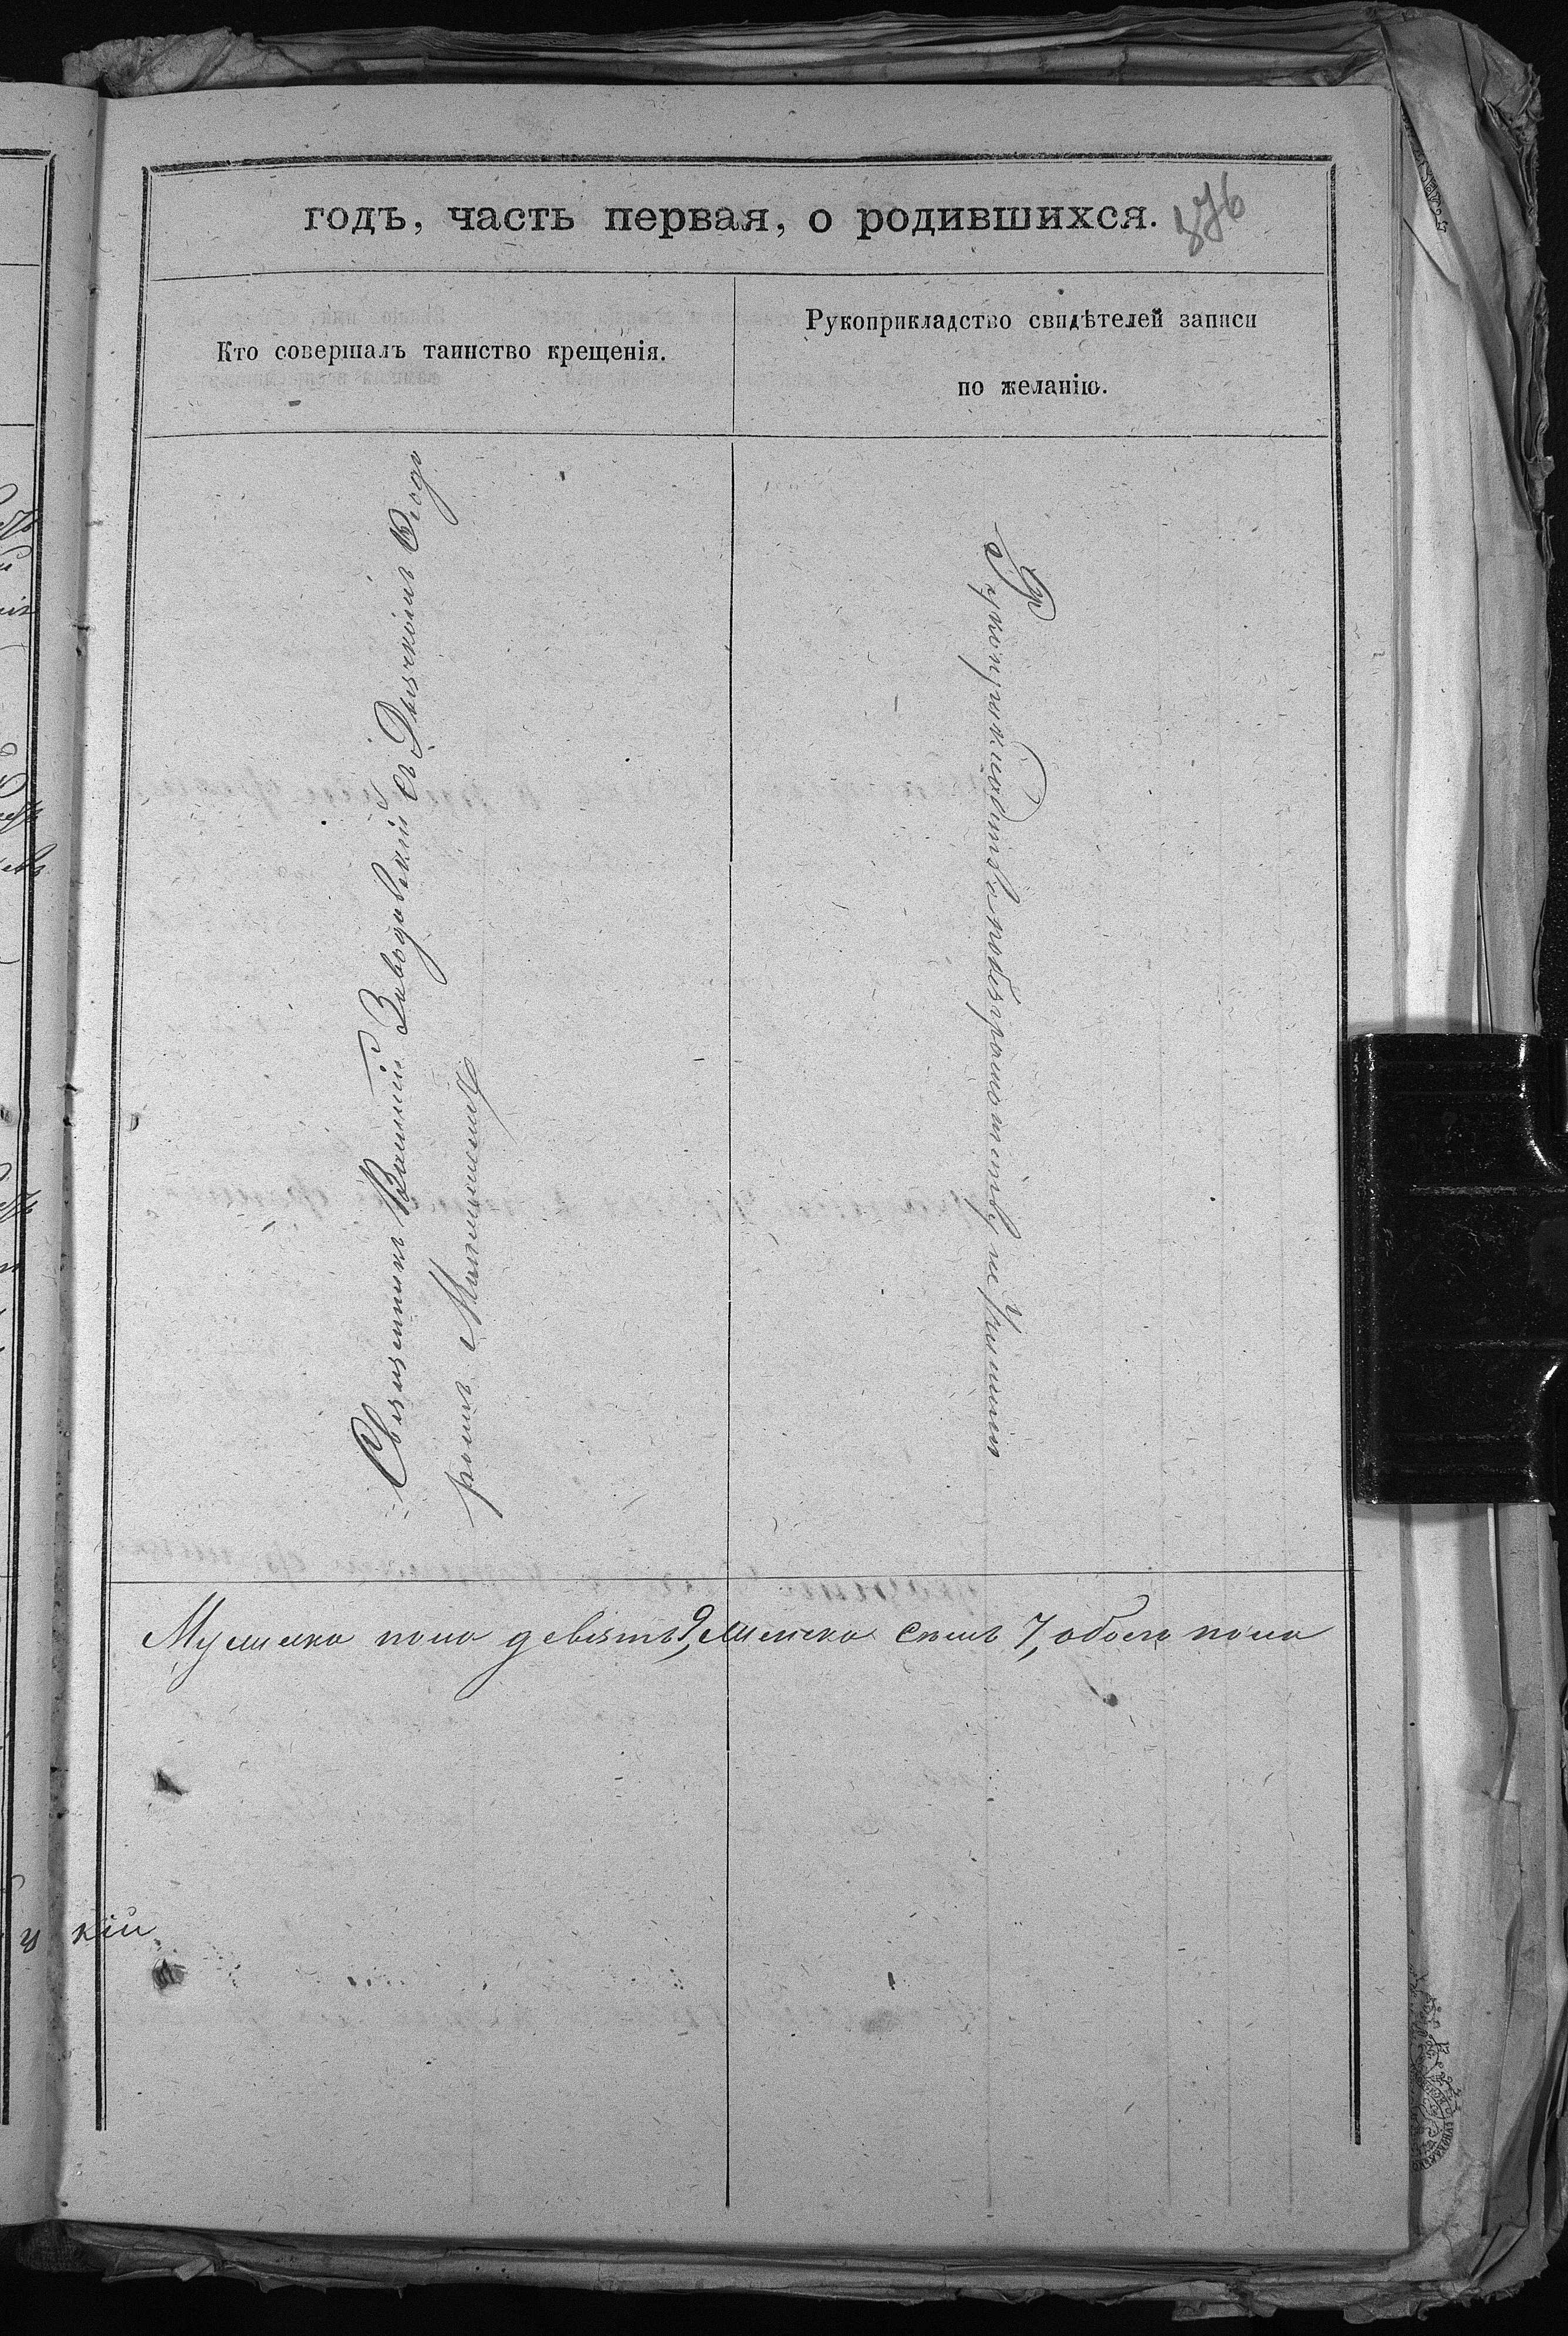 годъ, часть первая, о родившихся.
876
Кто совершалъ таинство крещенія.
Рукоприкладство свидѣтелей записи
по желанію.
Священникъ Василій Заводовскій съ Дьячкомъ Ѳеодо
ромъ
Рукоприкладство по безграмотству не
Мужеска пола девять 9, женска семь 7, обоего пола
кій